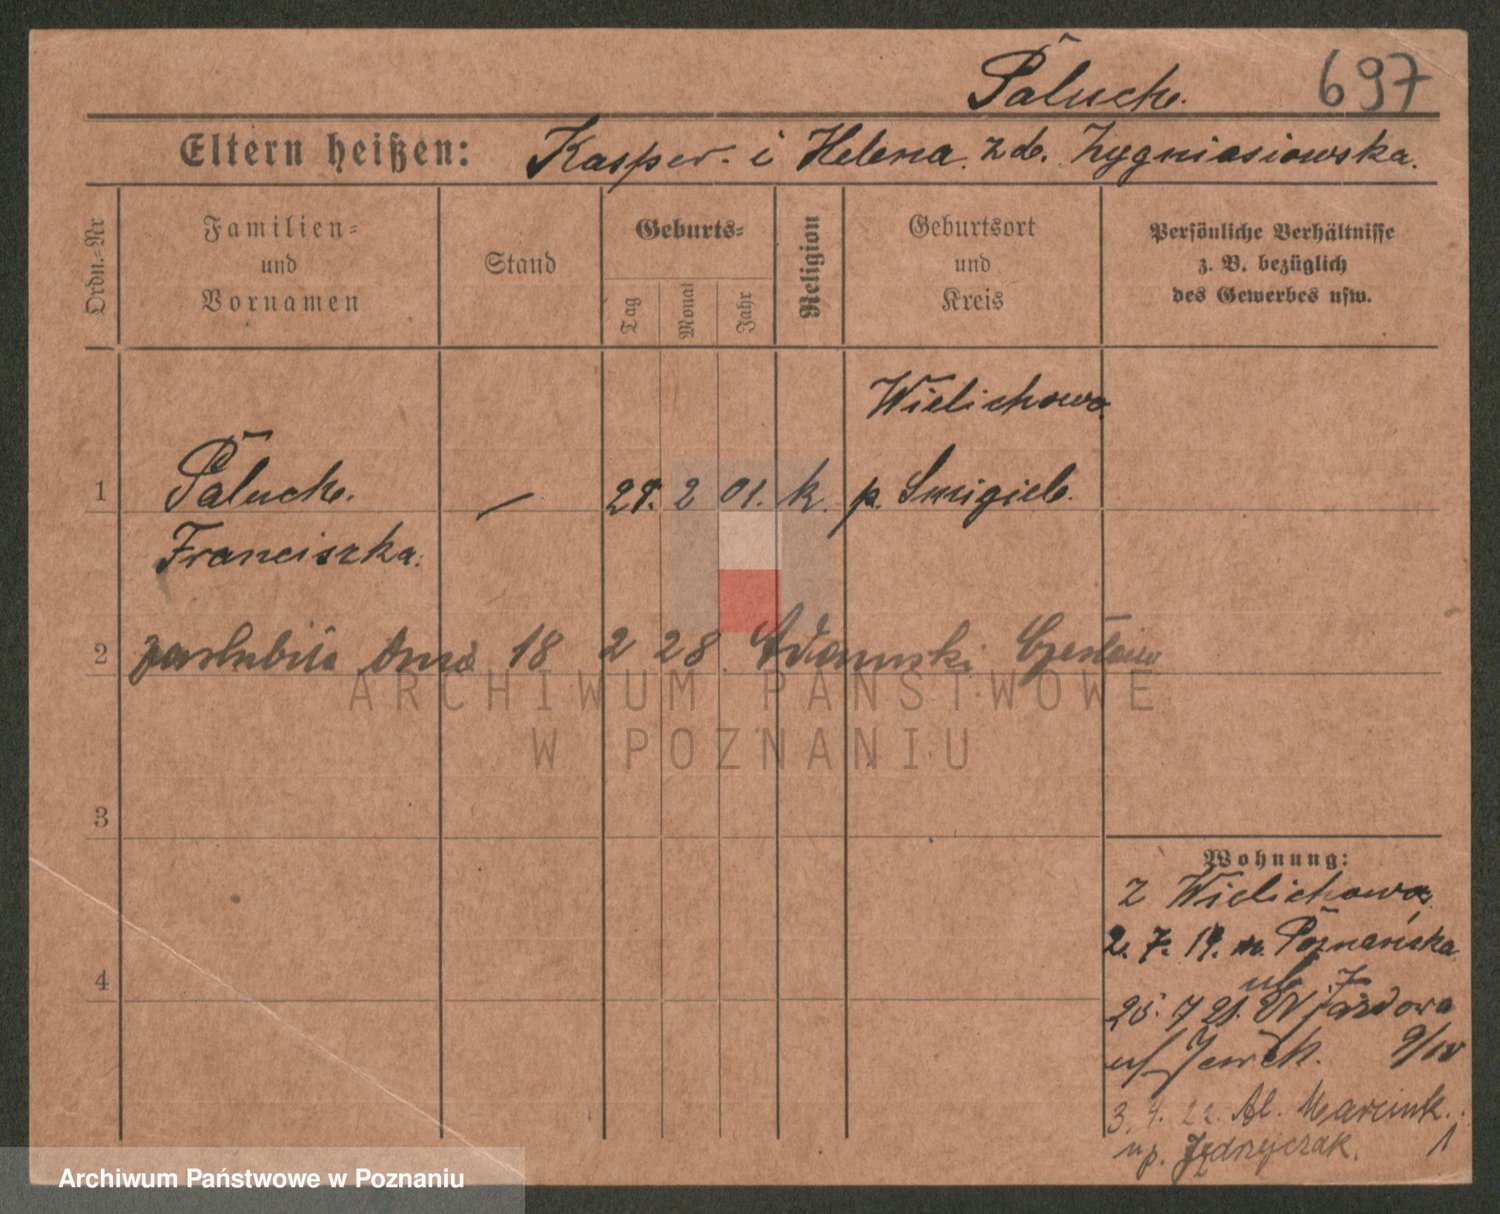 Paluch. 697
Eltern heißen: Kasper. i Helena. z d. Zygniasiowska.
Ordn.-Nr
Familien-
und
Vornamen
Stand
Geburts-
Tag
Monat
Jahr
Religion
Geburtsort
und
Kreis
Persönliche Verhältnisse
z. B. bezüglich
des Gewerbes usw.
Wielichowo
1 Paluch. — 2 01. k. p. Smigiel.
Franciszka.
2 zaślubiła dnia 18 2 28 Adamski Czesław
ARCHIWUM PAŃSTWOWE
W POZNANIU
3
4
Wohnung:
z Wielichowa
2. 7. 19. Poznańska
7
21. W. Jazdowa
u/ 9/IV
3. 4. 22. Al. Marcink. 1
u p. Jędrzejczak.
Archiwum Państwowe w Poznaniu